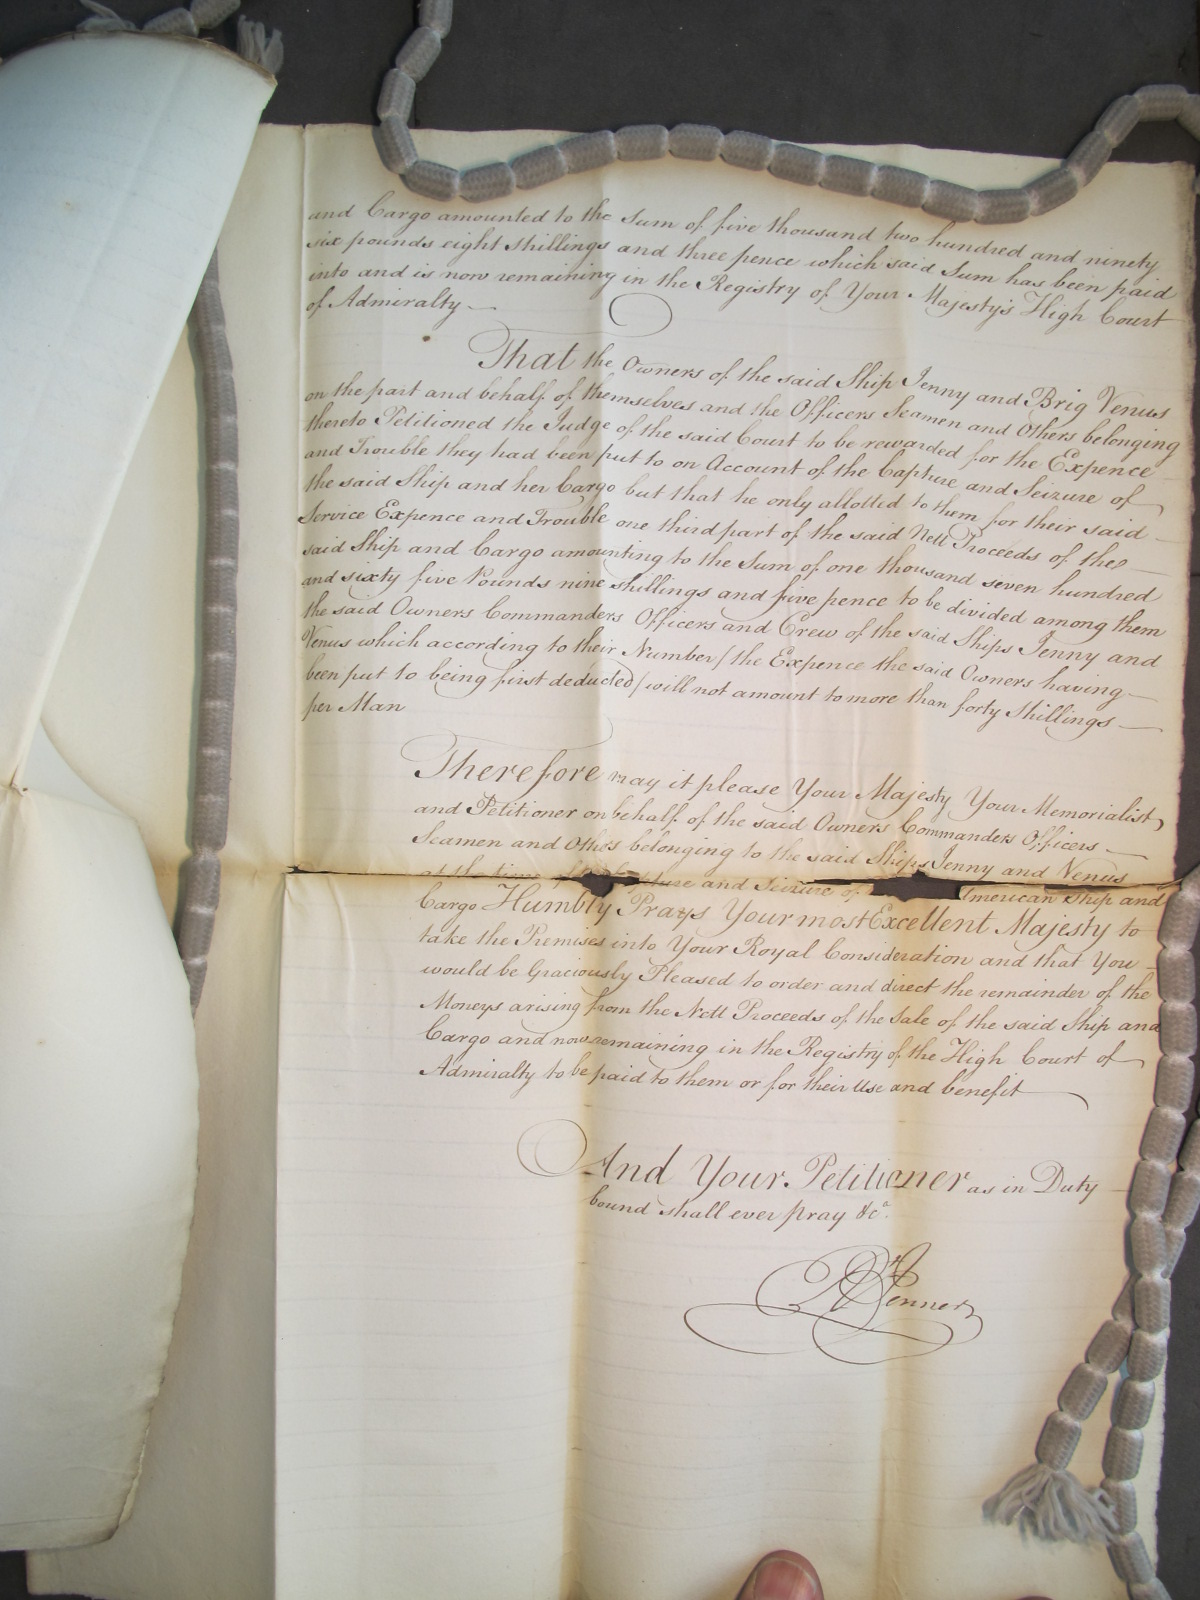 and Cargo amounted to the Sum of five thousand two hundred and ninety
six pounds eight shillings and three pence which said Sum has been paid
into and is now remaining in the Registry of Your Majesty's High Court
of Admiralty
That the Owners of the said Ship Jenny and Brig Venus
on the part and behalf of themselves and the Officers Seamen and Others belonging
thereto Petitioned the Judge of the said Court to be rewarded for the Expence
and Trouble they had been put to on Account of the Capture and Seizure of
the said Ship and her Cargo but that he only allotted to them for their said
Service Expence and Trouble one third part of the said Nett Proceeds of the
said Ship and Cargo amounting to the Sum of one thousand seven hundred
and sixty five Pounds nine shillings and five pence to be divided among them
the said Owners Commanders Officers and Crew of the said Ships Jenny and
Venus which according to their Number / the Expence the said Owners having
been put to being first deducted / will not amount to more than forty shillings
per Man
Therefore may it please Your Majesty Your Memorialist
and Petitioner on behalf of the said Owners Commanders Officers
Seamen and Others belonging to the said Ships Jenny and Venus
at the time of and Seizure of American Ship and
Cargo Humbly Prays Your most Excellent Majesty to
take the Premises into Your Royal Consideration and that You
would be Graciously Pleased to order and direct the remainder of the
Moneys arising from the Nett Proceeds of the Sale of the said Ship and
Cargo and now remaining in the Registry of the High Court of
Admiralty to be paid to them or for their Use and benefit
And Your Petitioner as in Duty
bound shall ever pray &c.
Jenner